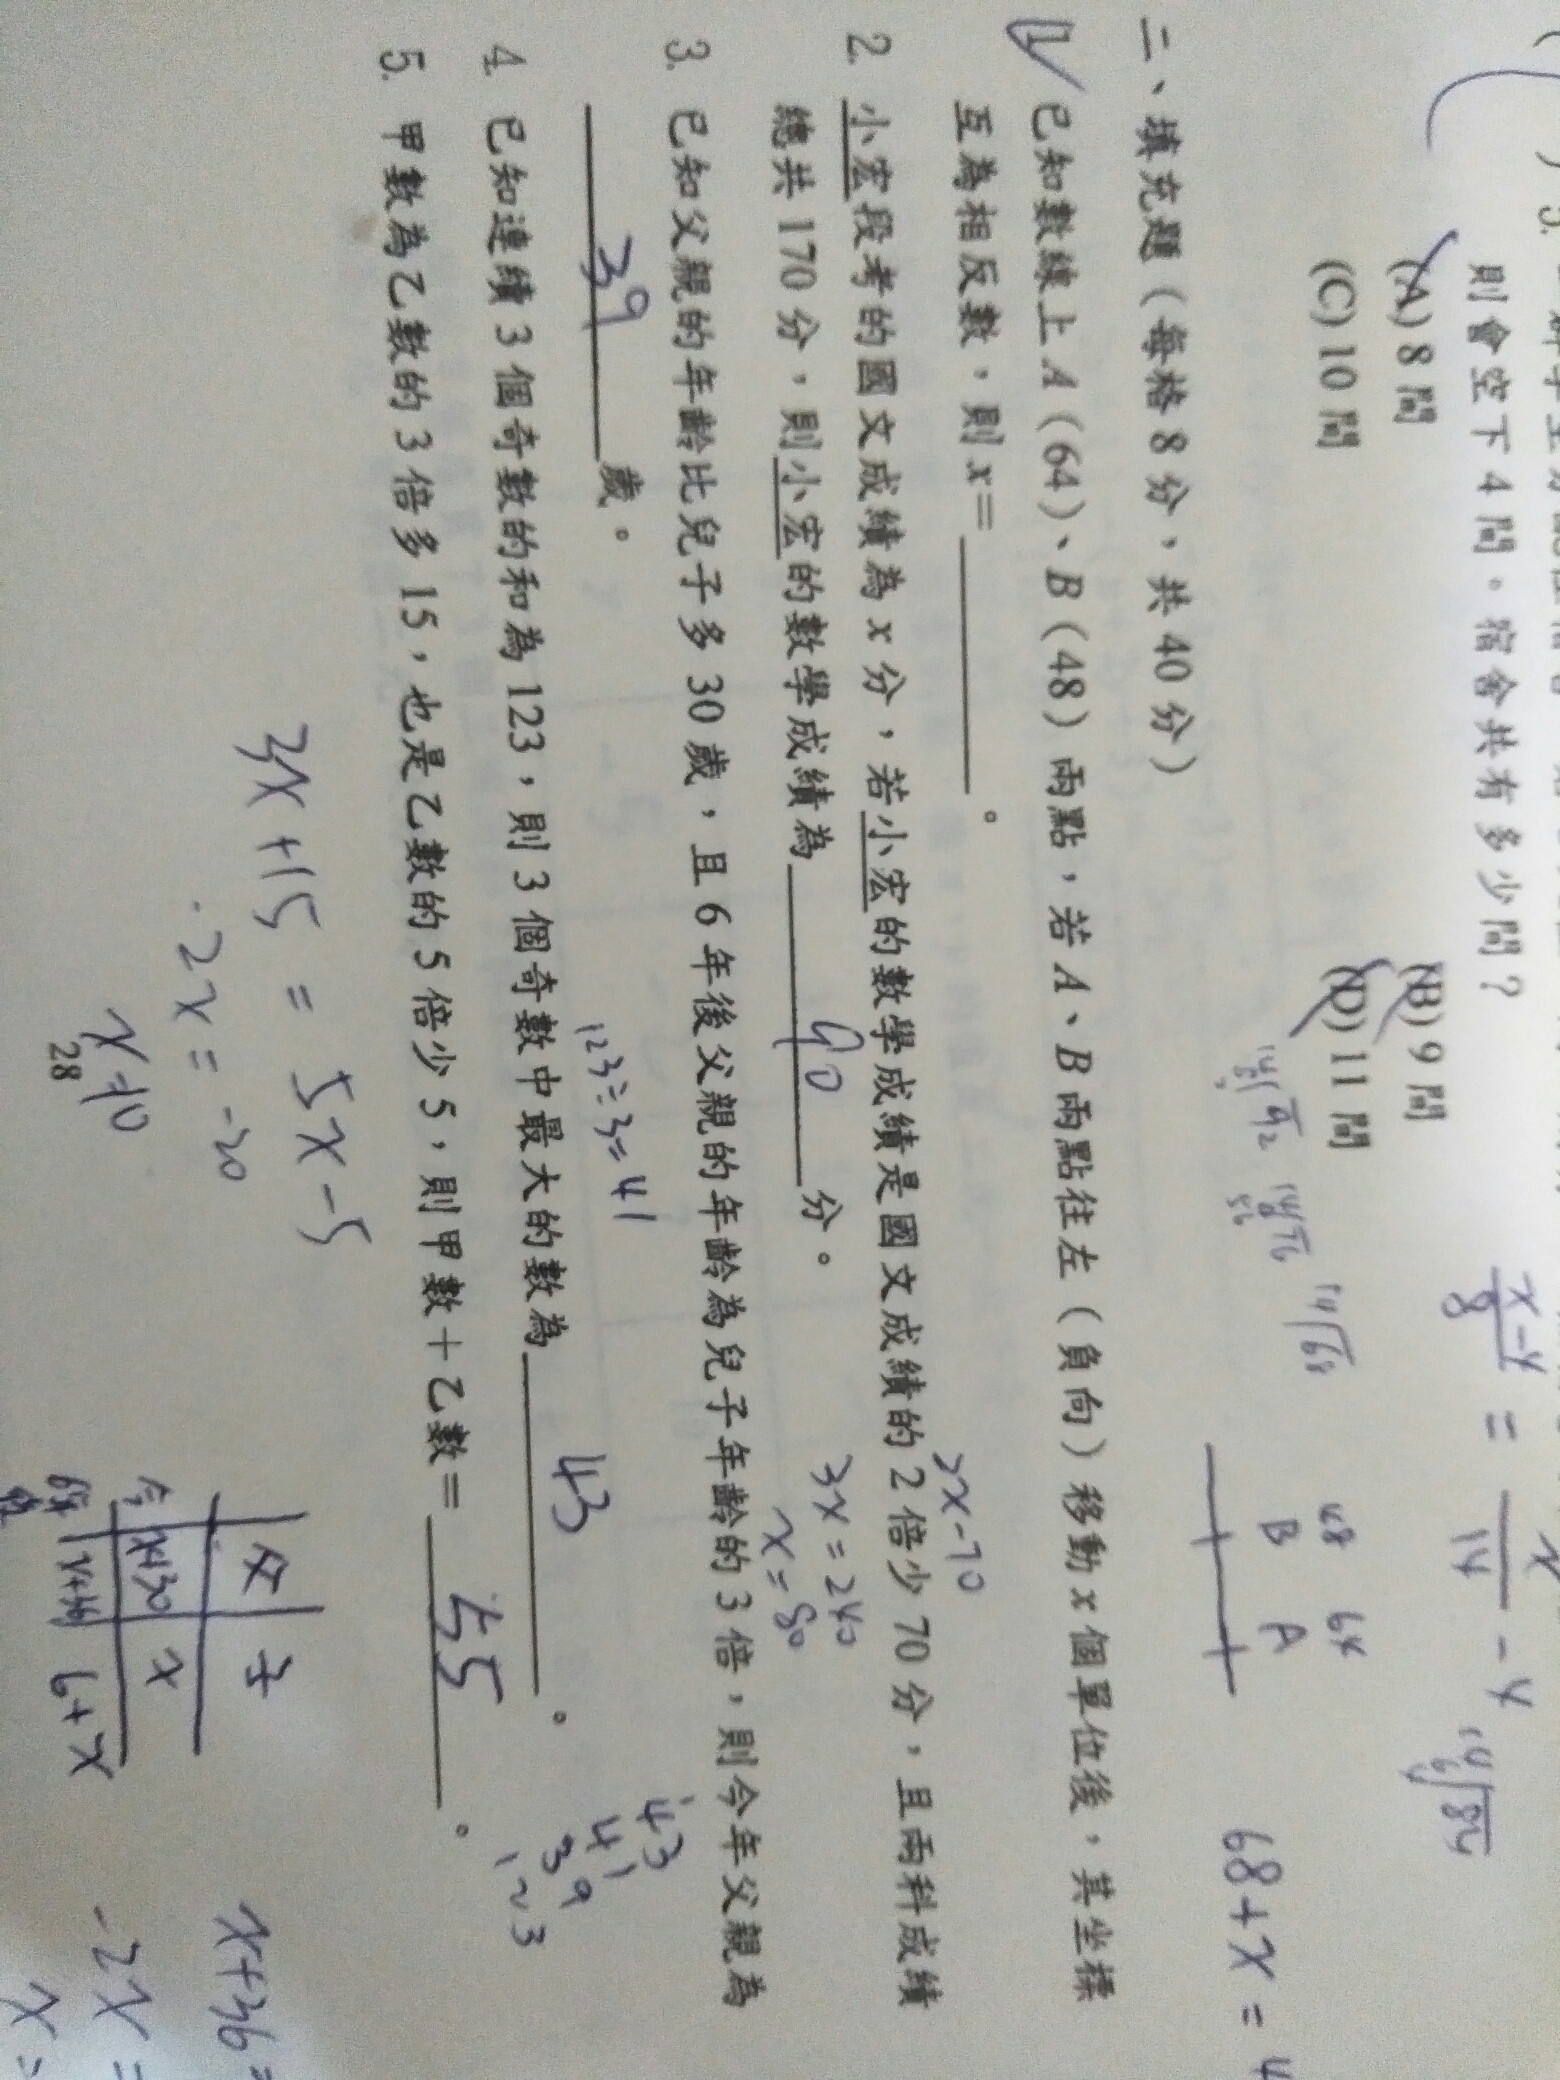 則會空下4間。宿舍共有多少間？
(A) 8間 (B) 9間
(C) 10間 (D) 11間
二、填充題（每格8分，共40分）
1. 已知數線上A（64）、B（48）兩點，若A、B兩點往左（負向）移動x個單位後，其坐標
互為相反數，則x=
。
2. 小宏段考的國文成績為x分，若小宏的數學成績是國文成績的2倍少70分，且兩科成績
總共170分，則小宏的數學成績為 90 分。
2x-70
3x=240
x=80
3. 已知父親的年齡比兒子多30歲，且6年後父親的年齡為兒子年齡的3倍，則今年父親為
39 歲。
123÷3=41
4. 已知連續3個奇數的和為123，則3個奇數中最大的數為 43 。
43
41
39
123
5. 甲數為乙數的3倍多15，也是乙數的5倍少5，則甲數＋乙數＝ 55 。
3x+15=5x-5
-2x=-20
x=10
48 64
B A
父 子
x+30 x
6+x
x+36=
-2x=
x=
28